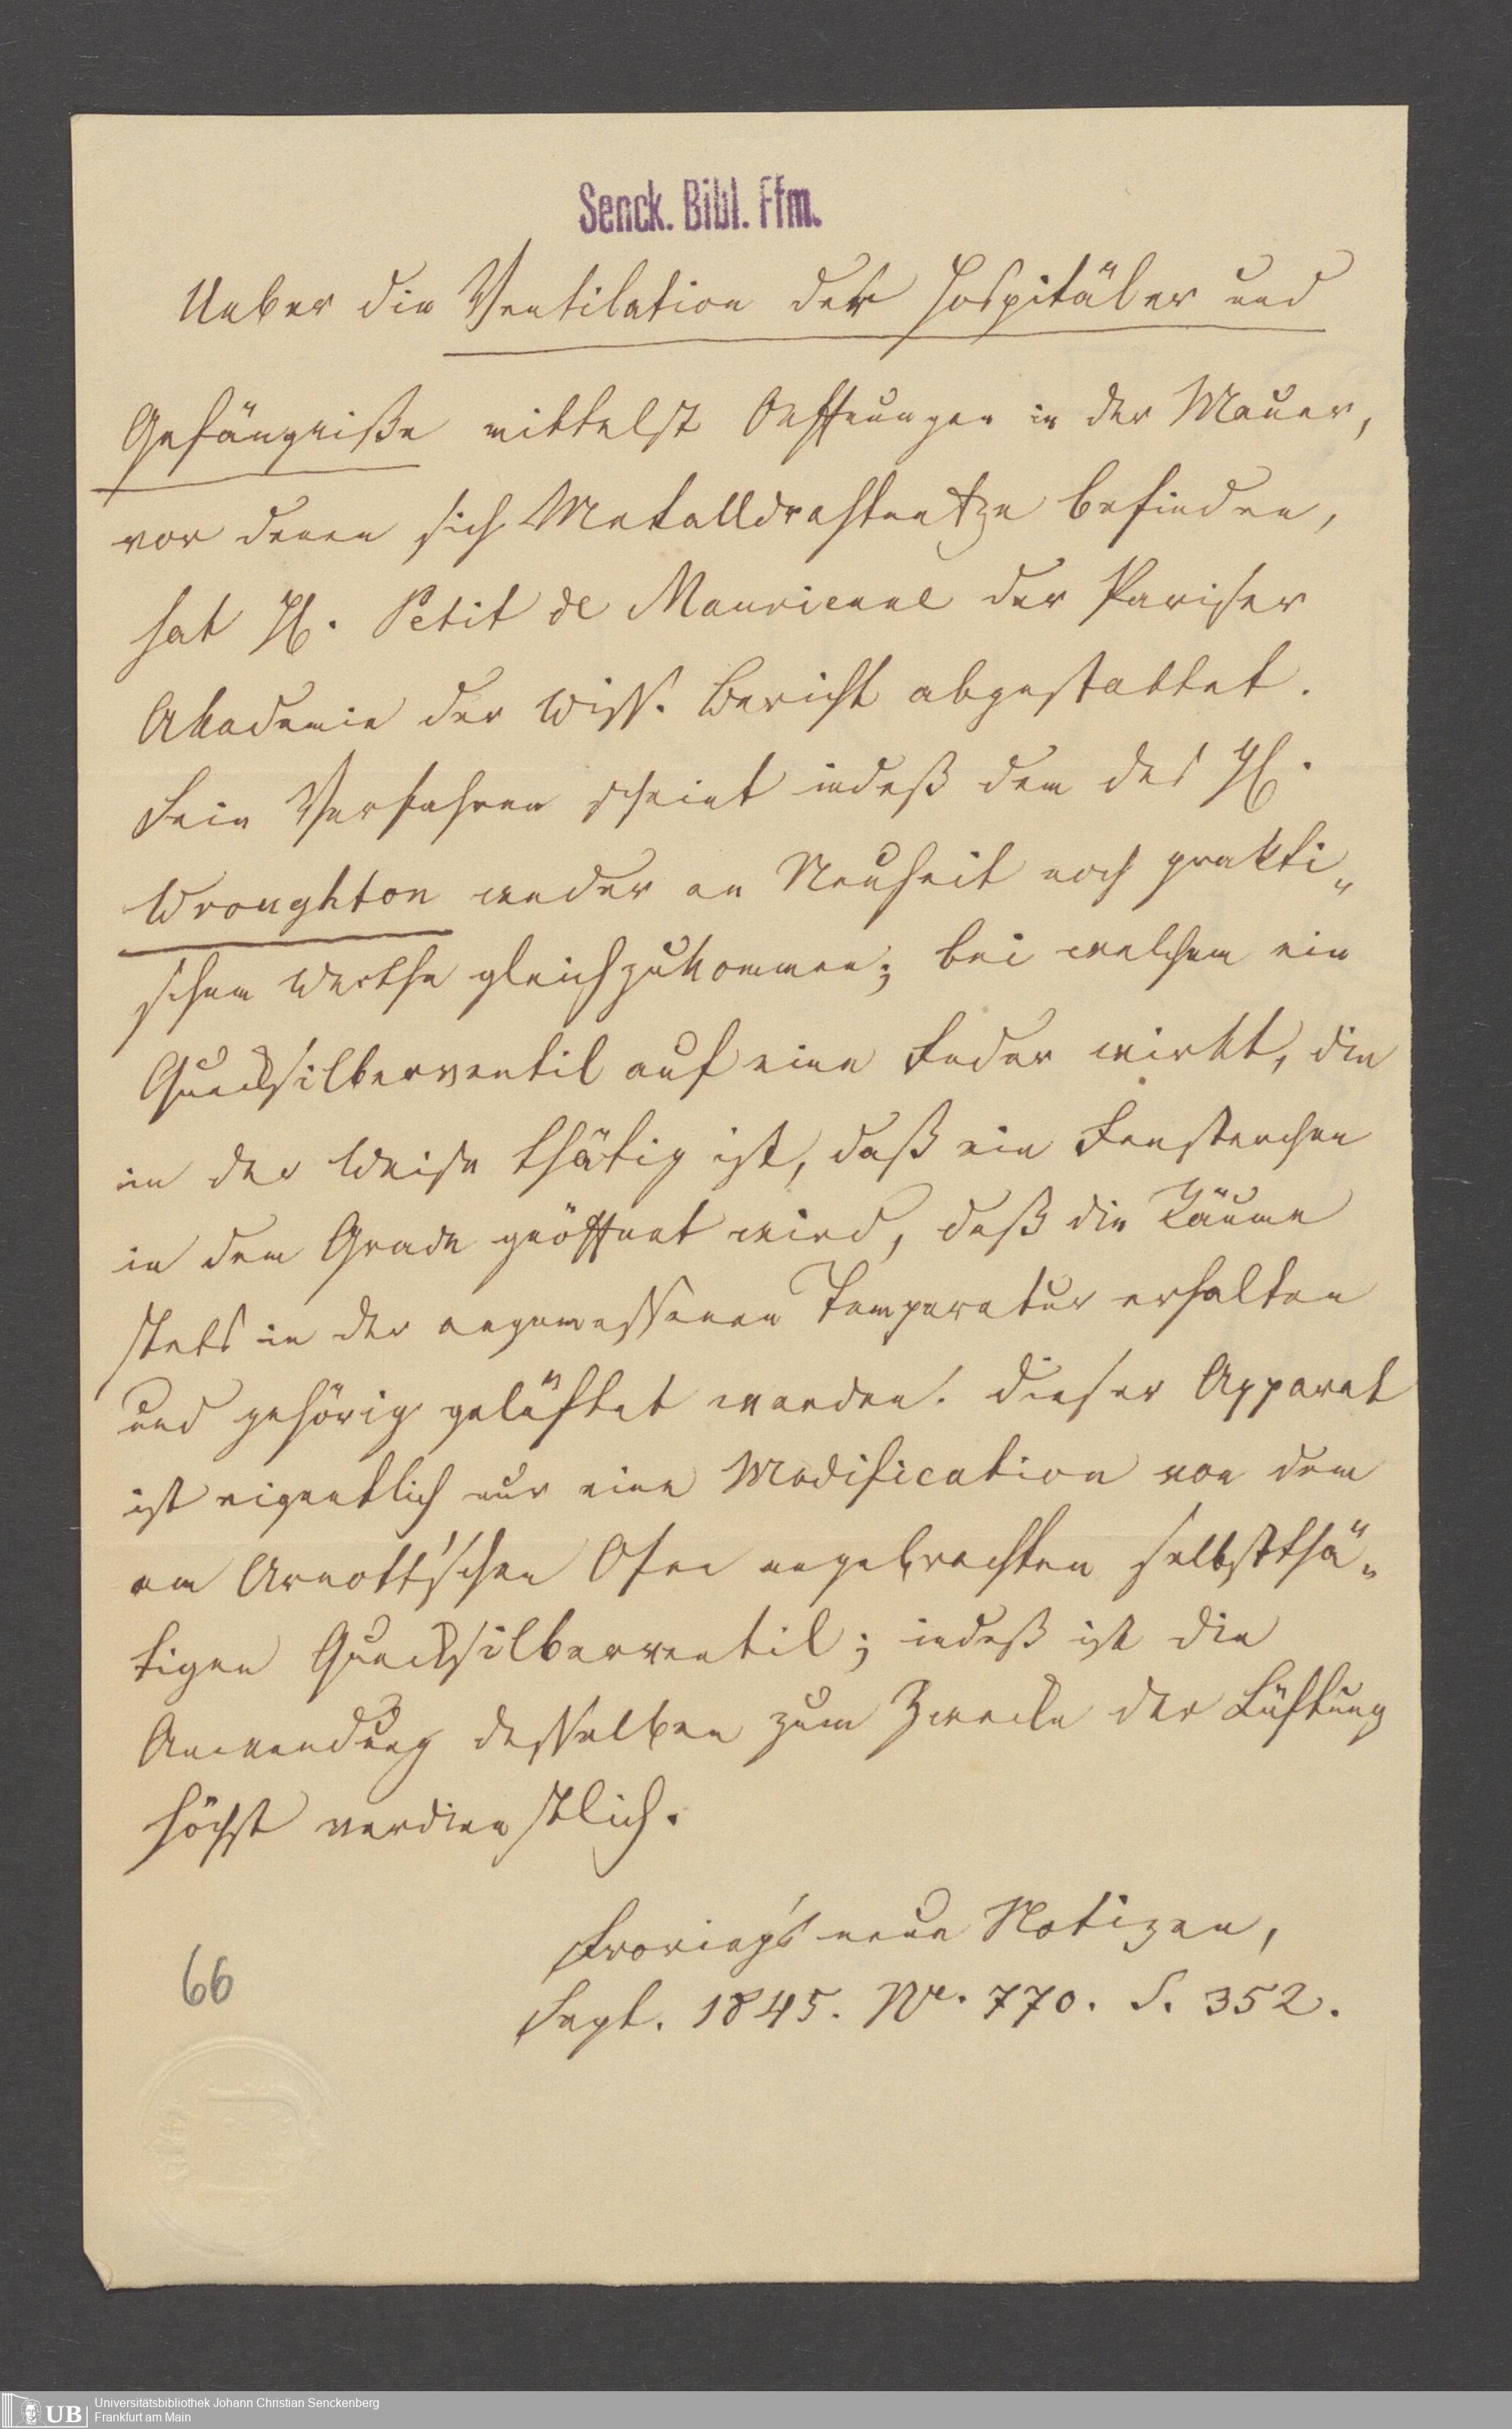 Senck. Bibl. Ffm.
Ueber die Ventilation der Hospitäler und
Gefängniße mittelst Oeffnungen in der Mauer,
vor denen sich Metalldrahtnetze befinden,
hat H. Petit de der Pariser
Akademie der Wiss. Bericht abgestattet.
Sein Verfahren scheint indeß dem des H.
Wroughton weder an Neuheit noch prakti„
schem Werthe gleichzukommen; bei welchem ein
Quecksilberventil auf eine Feder wirkt, die
in der Weise thätig ist, daß ein Fensterchen
in dem Grade geöffnet wird, daß die Räume
stets in der angemessenen Temperatur erhalten
und gehörig gelüftet werden. Dieser Apparat
ist eigentlich nur eine Modification von dem
am Arnott'schen Ofen angebrachten selbstthä„
tigen Quecksilberventil; indeß ist die
Anwendung desselben zum Zwecke der Lüftung
höchst verdienstlich.
Froriep's neue Notizen,
Sept. 1845. Nr. 770. S. 352.
66
UB
Universitätsbibliothek Johann Christian Senckenberg
Frankfurt am Main